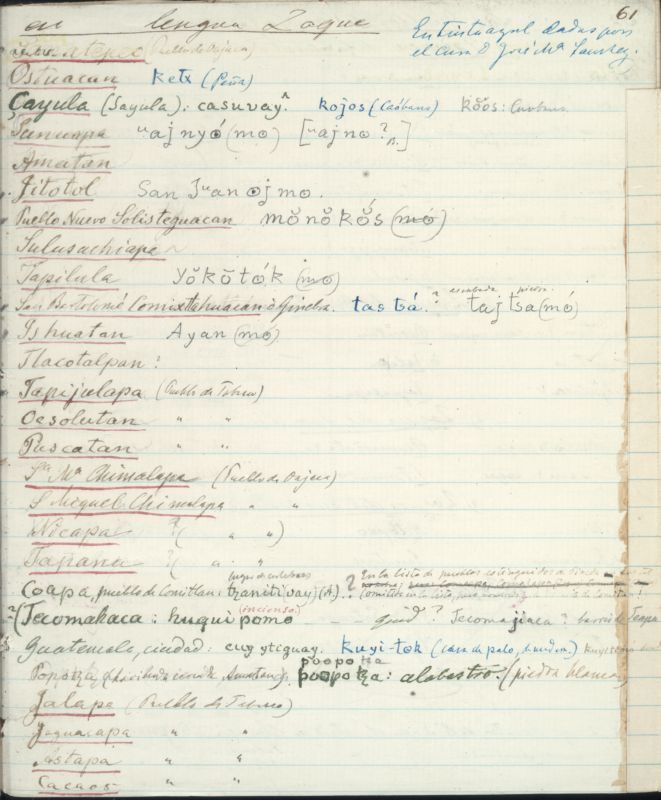 61
en lengua Zoque
En tinta azul dadas por
el cura D José Mª Sanchez.
(Pueblo de Oajaca)
Ostuacan ketx (Peña)
Çayula (Sayula): casuvay^ kojos (Caóbano) kŏŏs:
Sunuapa "ajnyó (mo) ["ajno ? B.]
Amatan
Jitotol San Juan ojmo.
Pueblo Nuevo Solisteguacan mŏnŏkŏs (mó)
Sulusuchiapa
Tapilula Yŏkŏtók (mo)
San Bartolomé Comixtlahuacan ó Ginebra. tastsá. ? tajtsa (mó)
piedra
Ishuatan Ayan (mó)
Tlacotalpan:
Tapijulapa (Pueblo de Tabasco)
Oesolutan " "
Puscatan " "
Sta Mª Chimalapa (Pueblo de Oajaca)
S Miguel Chimalapa " "
Nicapa ? ( " " )
Tapana ? ( " "
Coapa, pueblo de Comitlan: (A). ?
En la lista de pueblos estinguidos de
(Tecomahaca: huqui pomo (incienso) quid? Tecomajiaca? barrio de Teapa
Guatemala, ciudad: kuyi-tok (casa de palo,
poopo tza
Popotza poopo tza: alabastro. (piedra blanca)
Jalapa (Pueblo de Tabasco)
Jaguacapa " "
Astapa " "
Cacaos " "